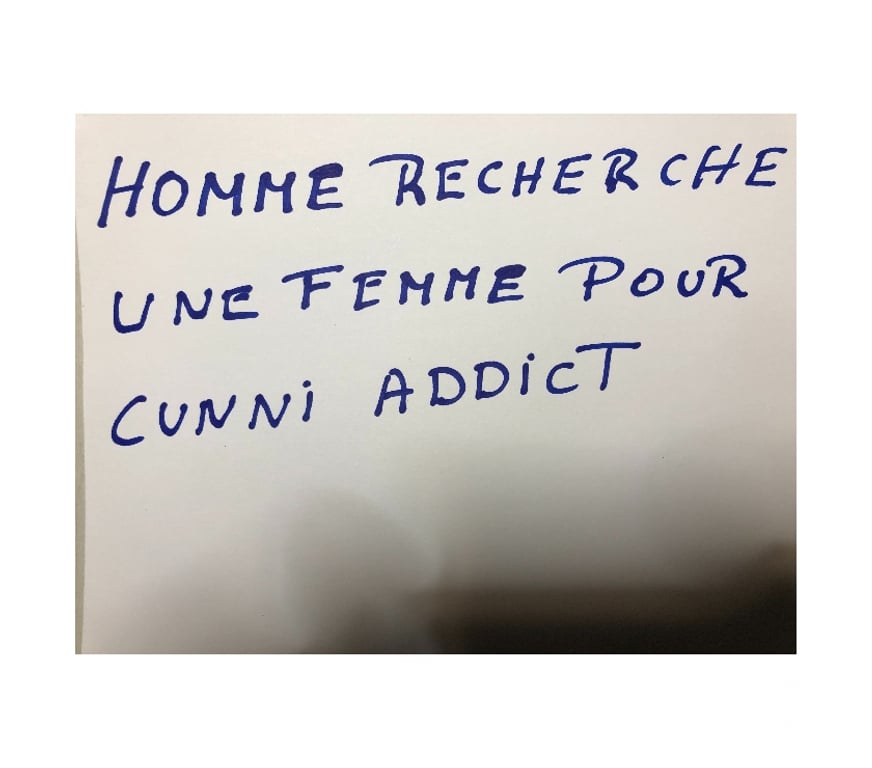 HOMME RECHERCHE
UNE FEMME POUR
CUNNi ADDiCT